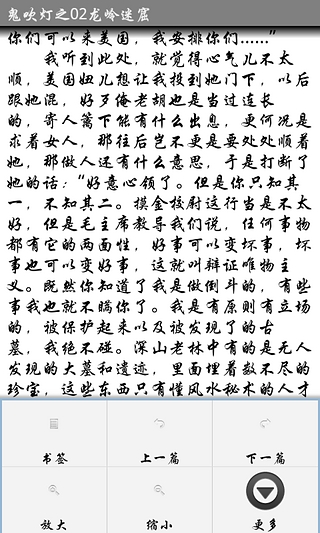 鬼吹灯之02龙岭迷窟
你们可以来美国，我安排你们……”
我听到此处，就觉得心气儿不太
顺，美国妞儿想让我投到她门下，以后
跟她混，好歹俺老胡也是当过连长
的，寄人篱下能有什么出息，更何况是
求着女人，那往后岂不更是要处处顺着
她，那做人还有什么意思，于是打断了
她的话：“好意心领了。但是你只知其
一，不知其二。摸金校尉这行当是不太
好，但是毛主席教导我们说，任何事物
都有它的两面性，好事可以变坏事，坏
事也可以变好事，这就叫辩证唯物主
义。既然你知道了我是做倒斗的，有些
事我也就不瞒你了。我是有原则有立场
的，被保护起来以及被发现了的古
墓，我绝不碰。深山老林中有的是无人
发现的大墓和遗迹，里面埋着数不尽的
珍宝，这些东西只有懂风水秘术的人才
书签
上一篇
下一篇
放大
缩小
更多